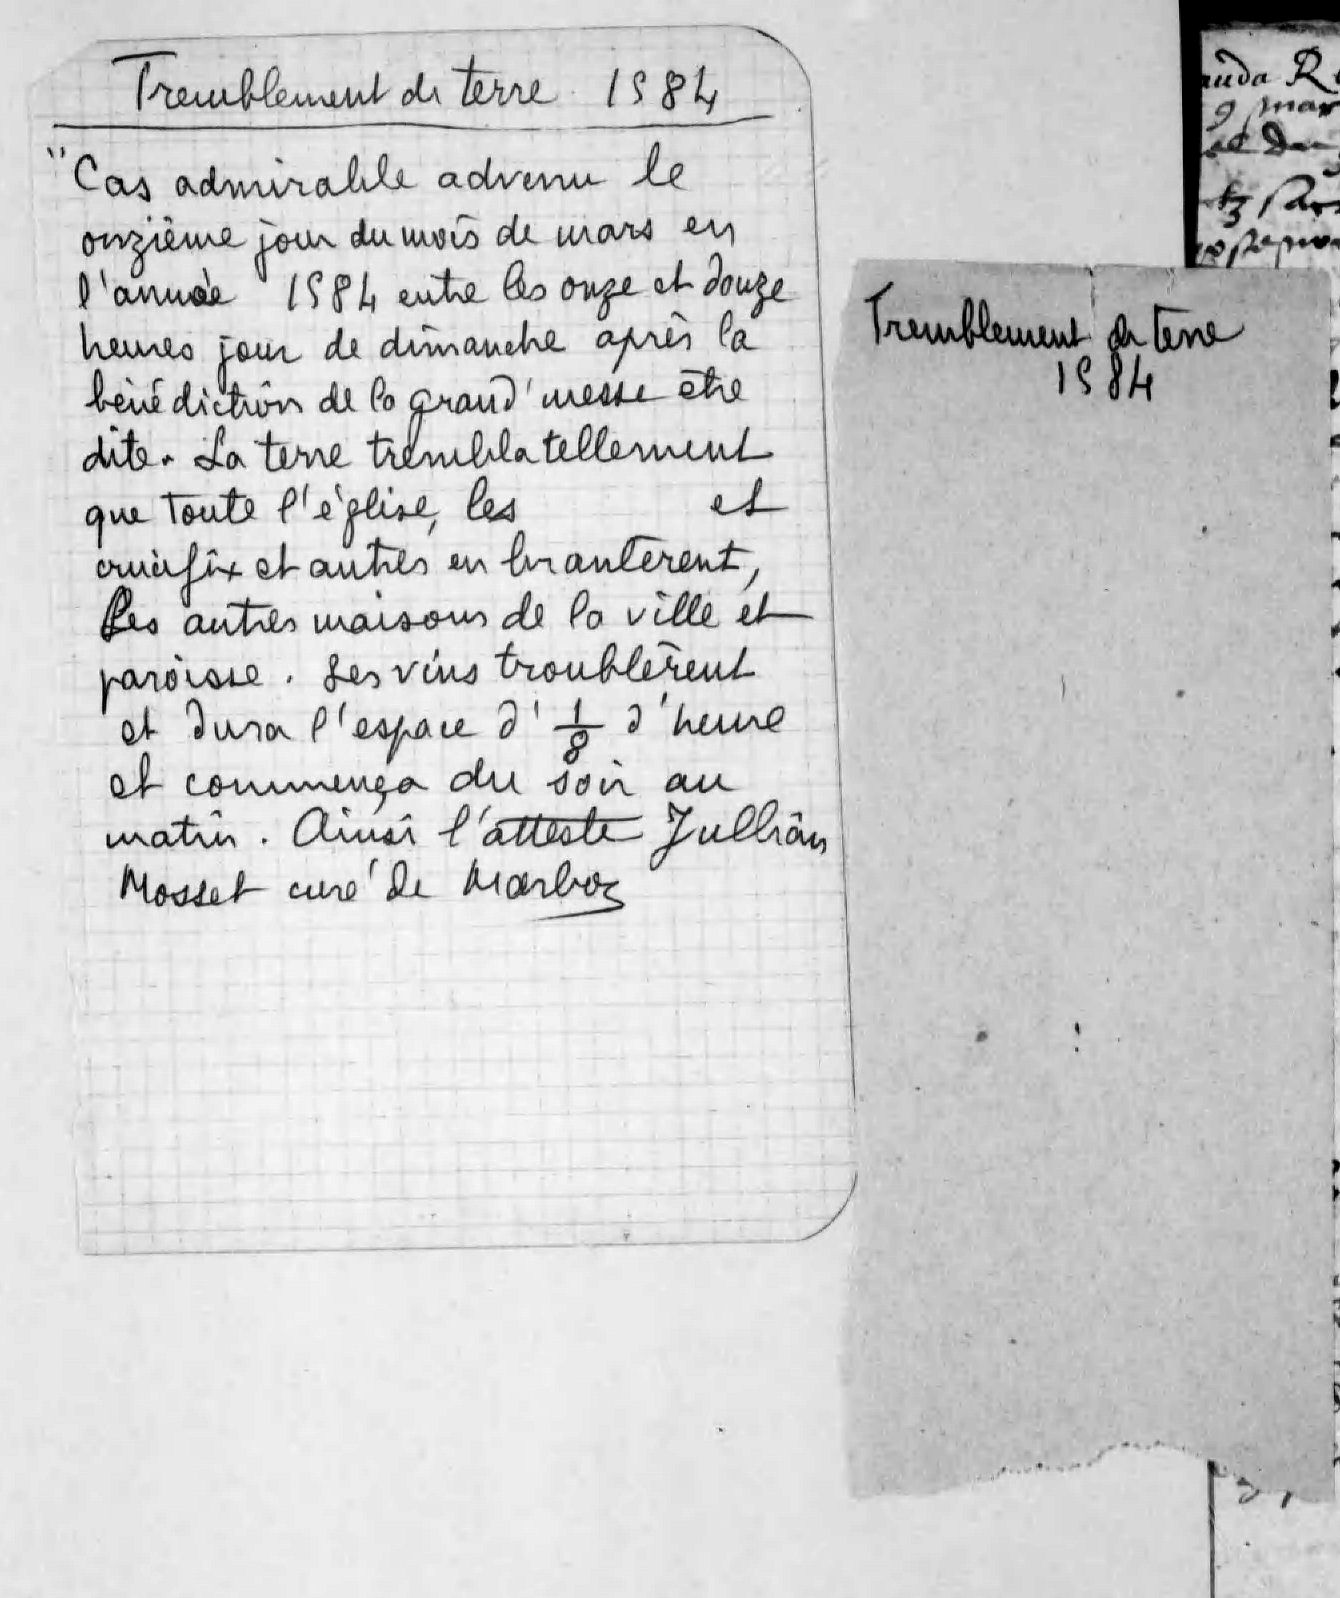 Tremblement de terre 1584
"Cas admirable advenu le
onzième jour du mois de mars en
l'année 1584 entre les onze et douze
heures jour de dimanche après la
bénédiction de la grand'messe être
dite. La terre trembla tellement
que toute l'église, les et
crucifix et autres en brantèrent,
Les autres maisons de la ville et
paroisse. Les vins troublèrent
et dura l'espace d' 1/8 d'heure
et commença du soir au
matin. Ainsi l'atteste Jullian
Mosset curé de Marboz
Tremblement de terre
1584